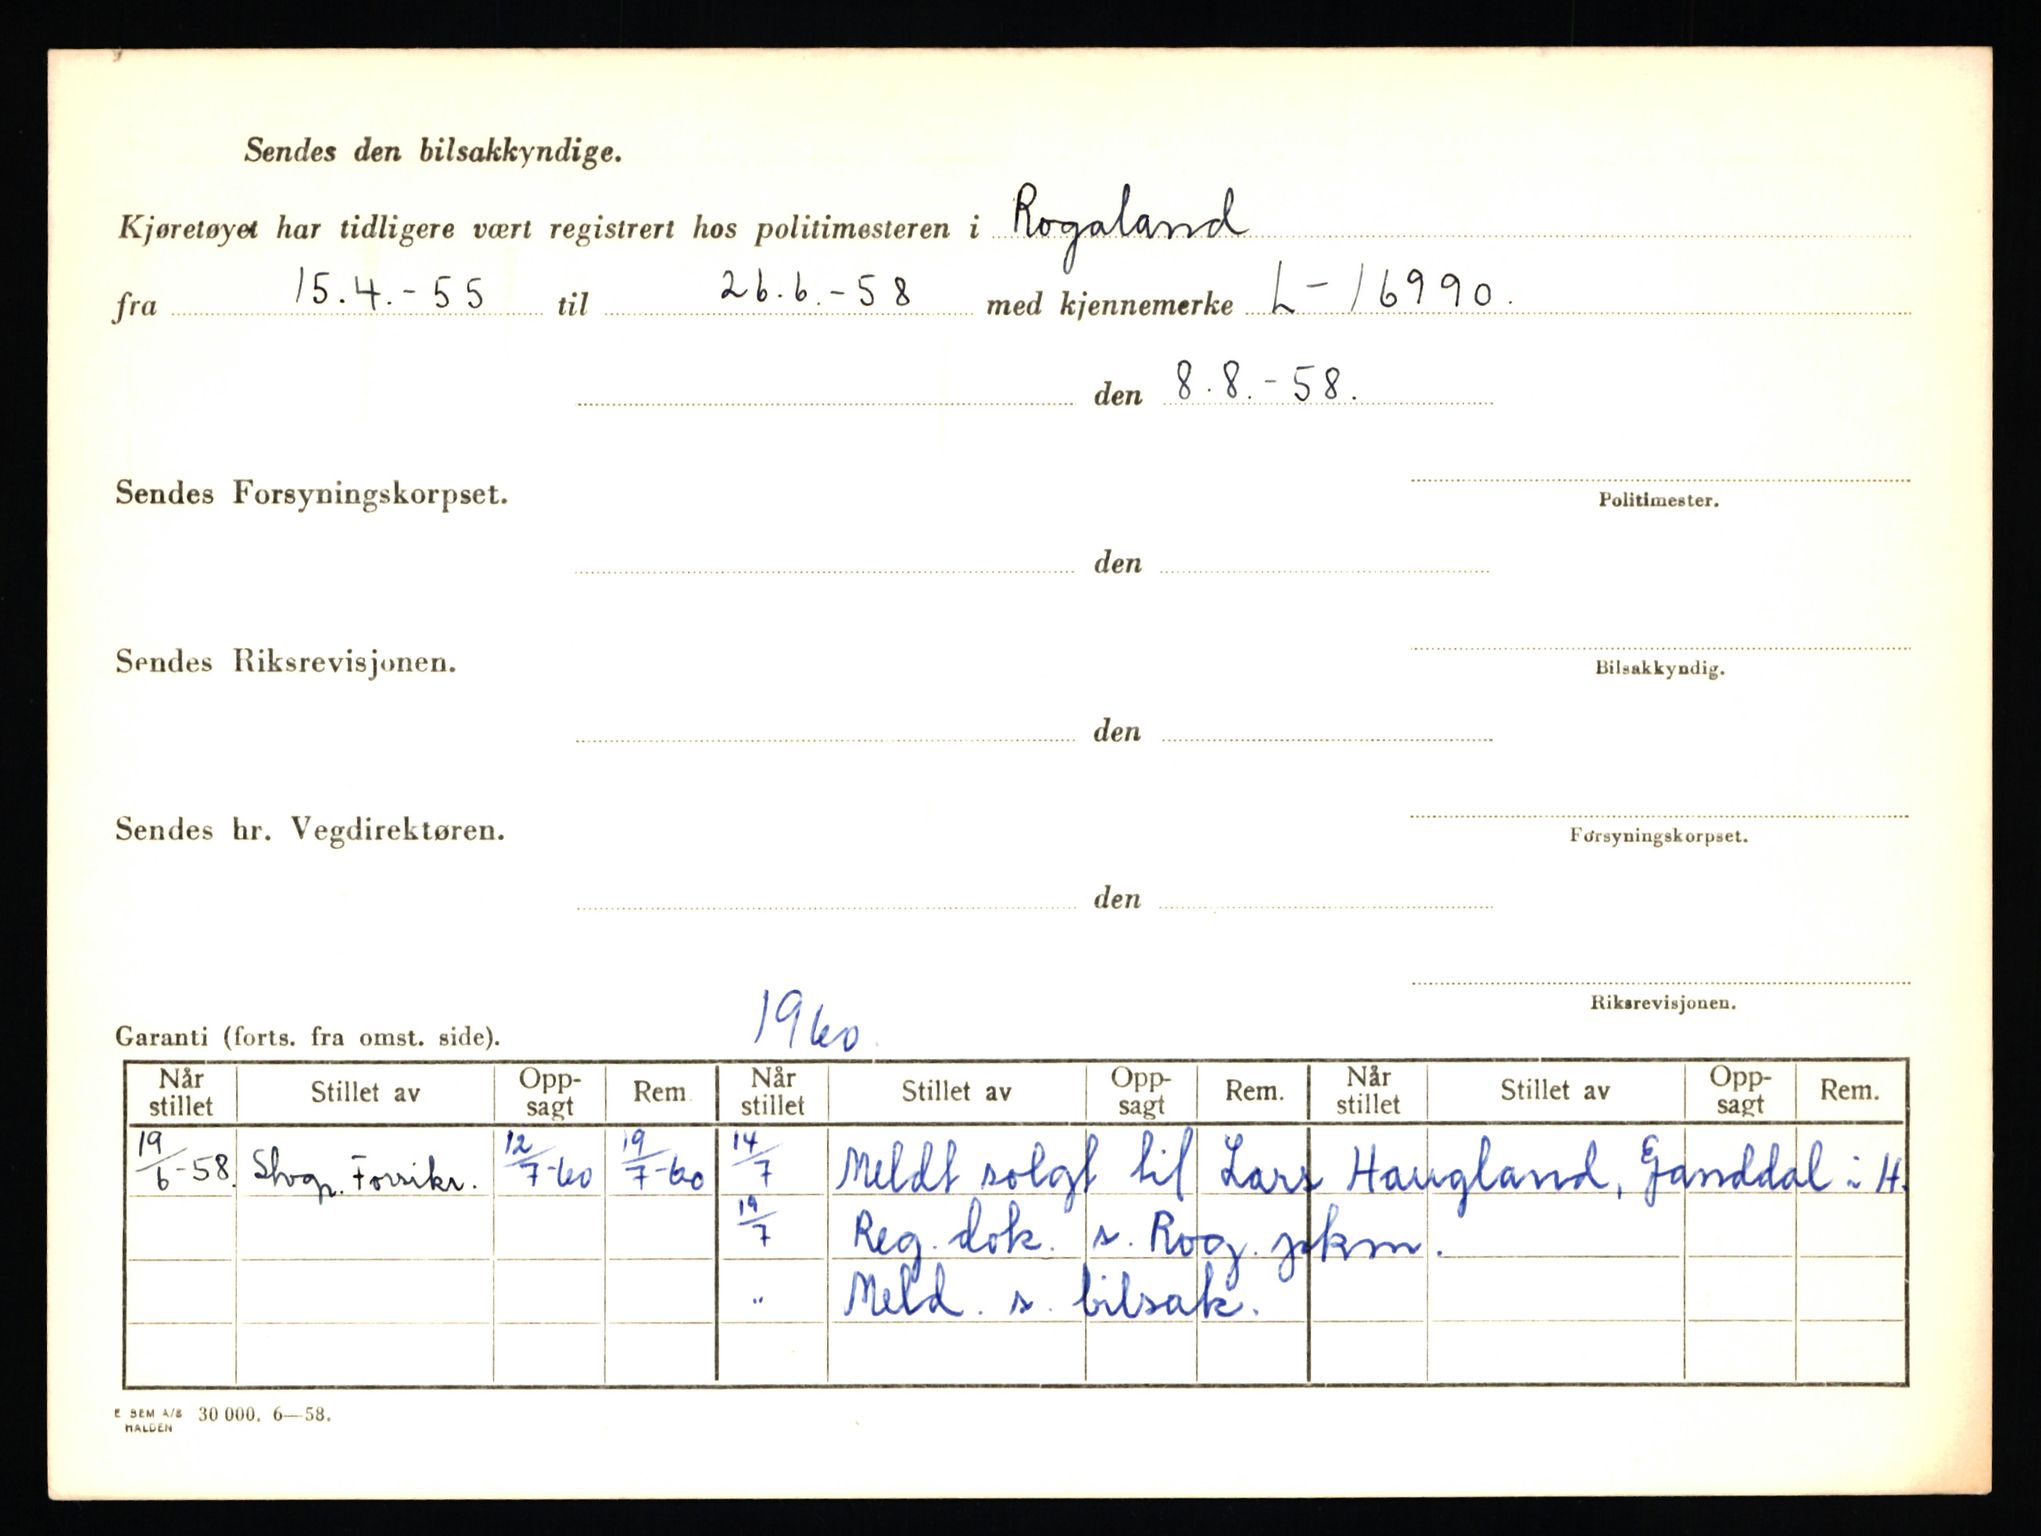 Sendes den bilsakkyndige.
Kjøretøyet har tidligere vært registrert hos politimesteren i Rogaland
fra 15.4.-55 til 26.6.-58 med kjennemerke L-16990.
den 8.8.-58.
Sendes Forsyningskorpset.
Politimester.
den
Sendes Riksrevisjonen.
Bilsakkyndig.
den
Sendes hr. Vegdirektøren.
Forsyningskorpset.
den
Riksrevisjonen.
Garanti (forts. fra omst. side). 1960
Når stillet Stillet av Opp-sagt Rem Når stillet Stillet av Opp-sagt Rem. Når stillet Stillet av Opp-sagt Rem.
19/6-58. Forsikr. 12/7-60 19/7-60 14/7 Meldt solgt til Lars Haugland, Ganddal i H.
19/7 Reg. dok. s. Rog. pkm.
" Meld. s. bilsak.
E SEM A/S 30 000. 6—58.
HALDEN